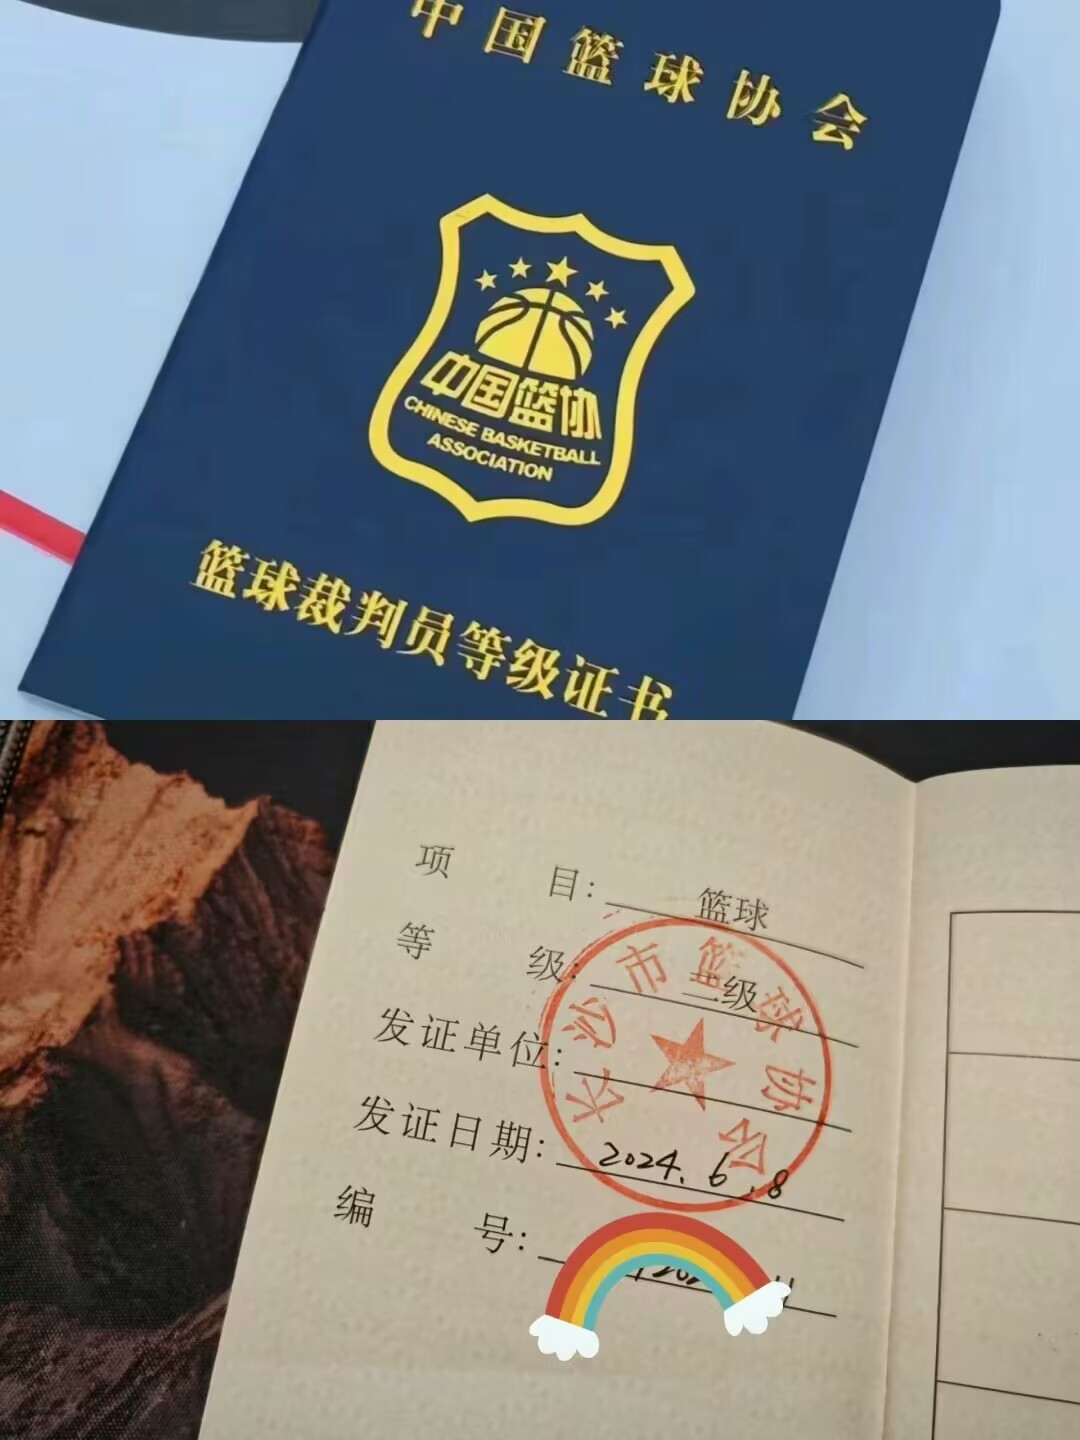 中国篮球协会
中国篮协
CHINESE BASKETBALL
ASSOCIATION
篮球裁判员等级证书
项 目: 篮球
等 级: 二级
发证单位:
长沙市篮球协会
发证日期: 2024.6.8
编 号: